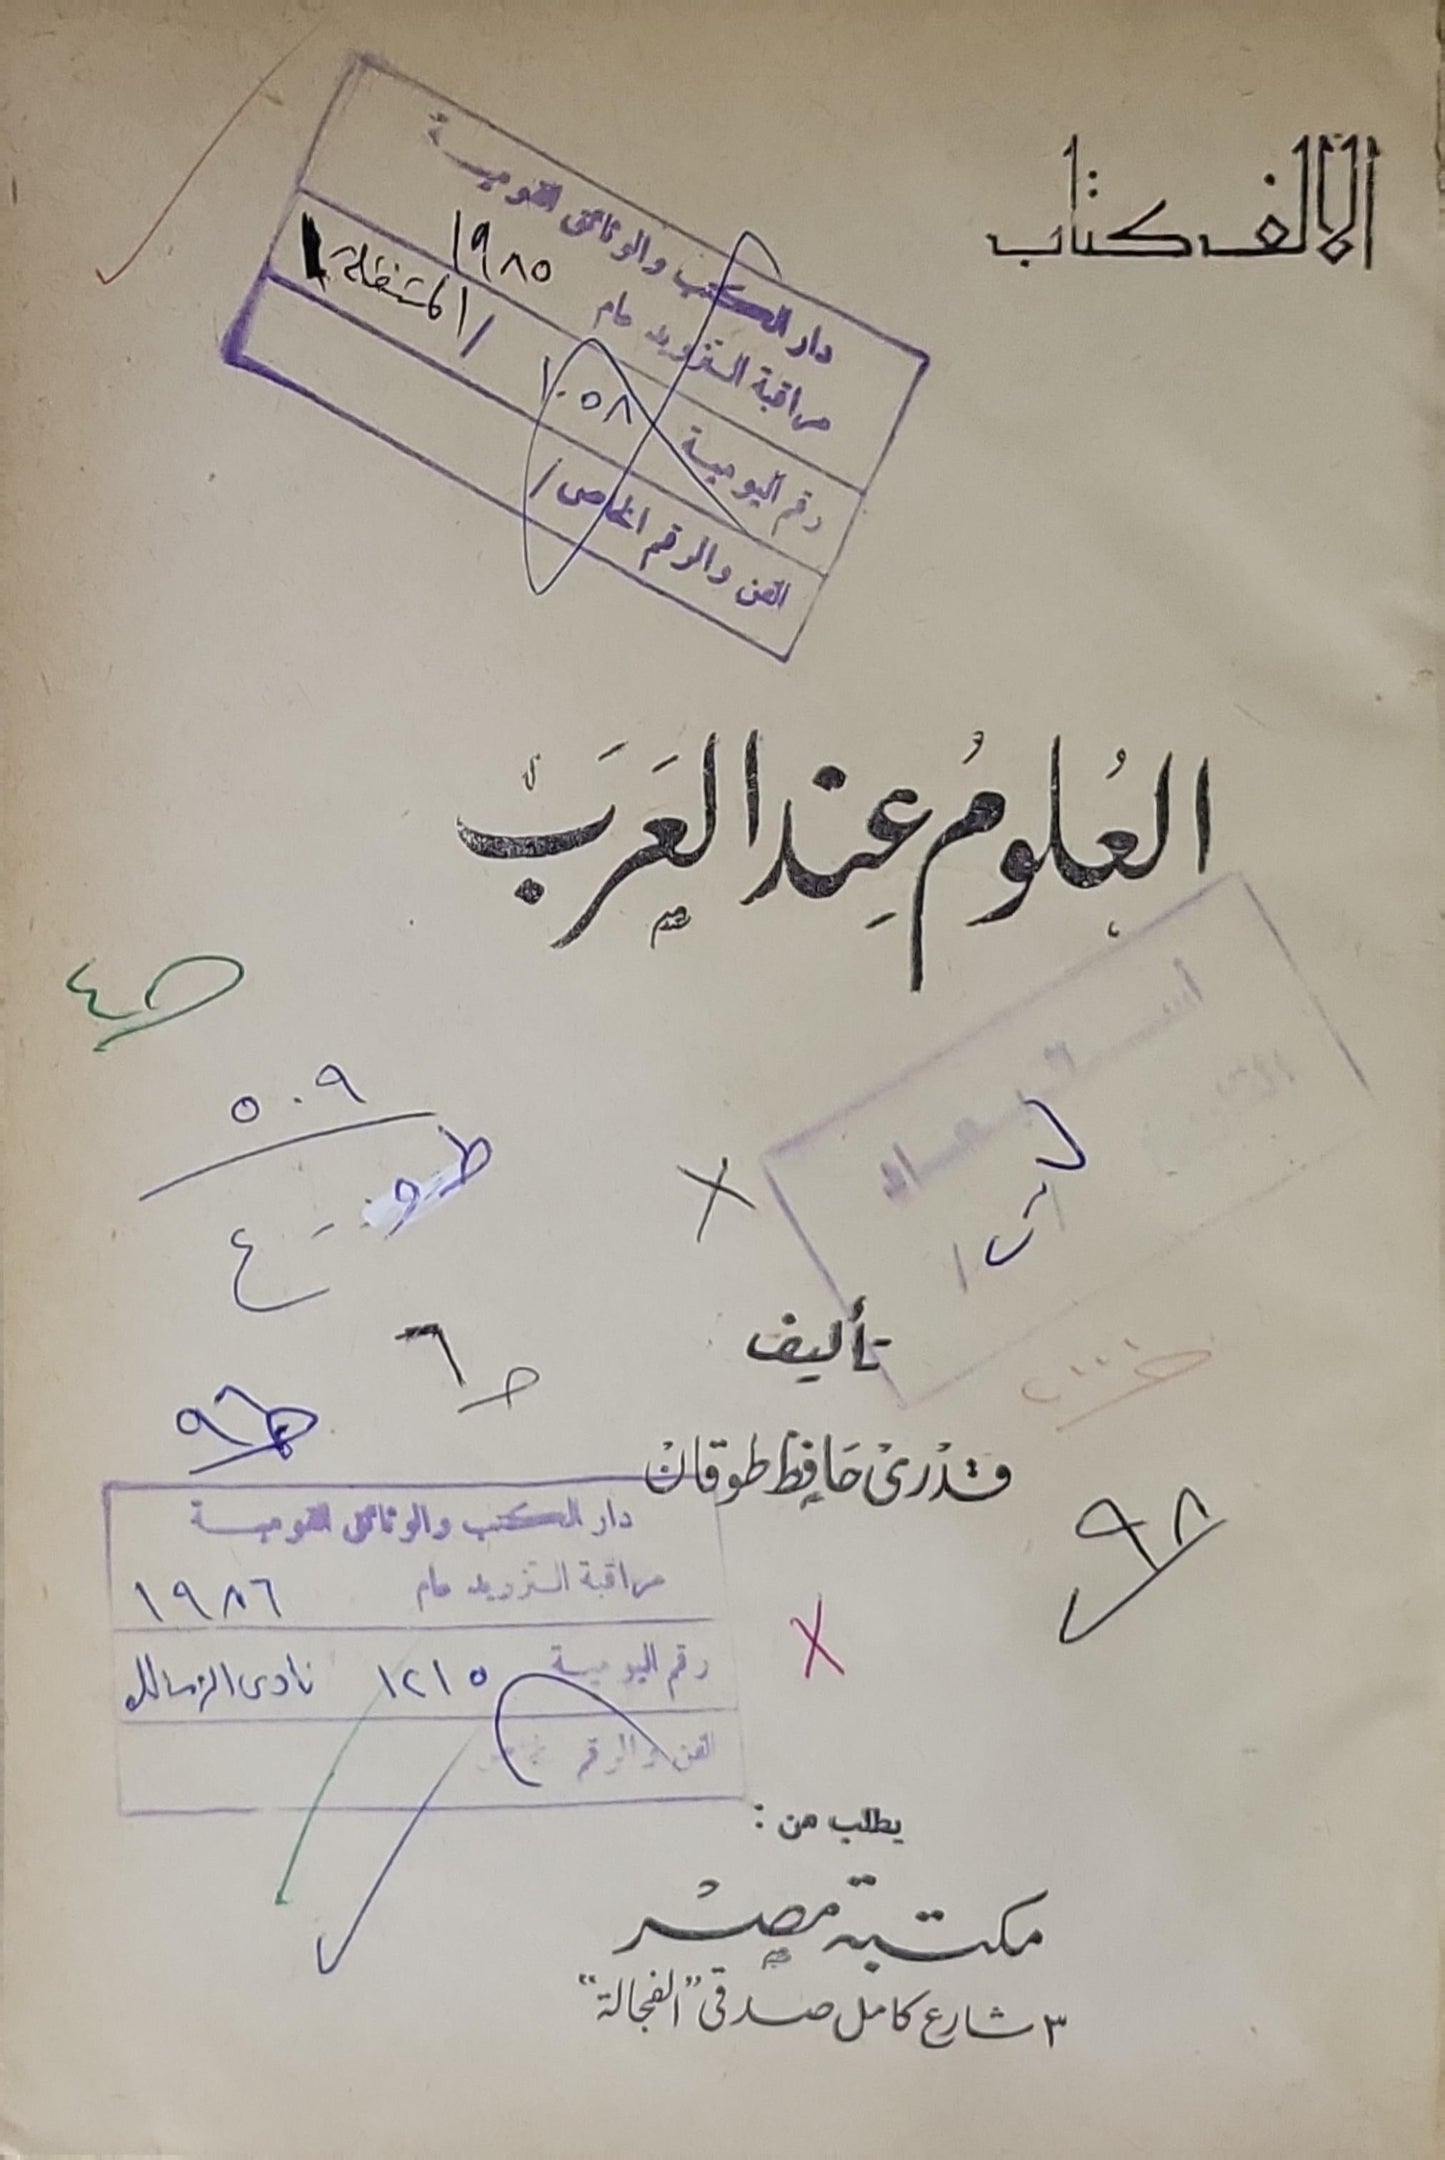 الألف كتاب
دار الكتب والوثائق القومية
مراقبة التزويد عام ١٩٨٥
رقم اليومية ١٠٥٨ /
الفن والرقم الخاص /
العُلومُ عِند العَرَب
ص٤
استبعاد
٥٠٩
ط و - ع
تأليف
ص٦
قدرى حافظ طوقان
ص٩
٩٨
دار الكتب والوثائق القومية
مراقبة التزويد عام ١٩٨٦
رقم اليومية ١٢١٥ نادى الزمالك
الفن والرقم الخاص
يطلب من :
مكتبة مصر
٣ شارع كامل صدقى "الفجالة"